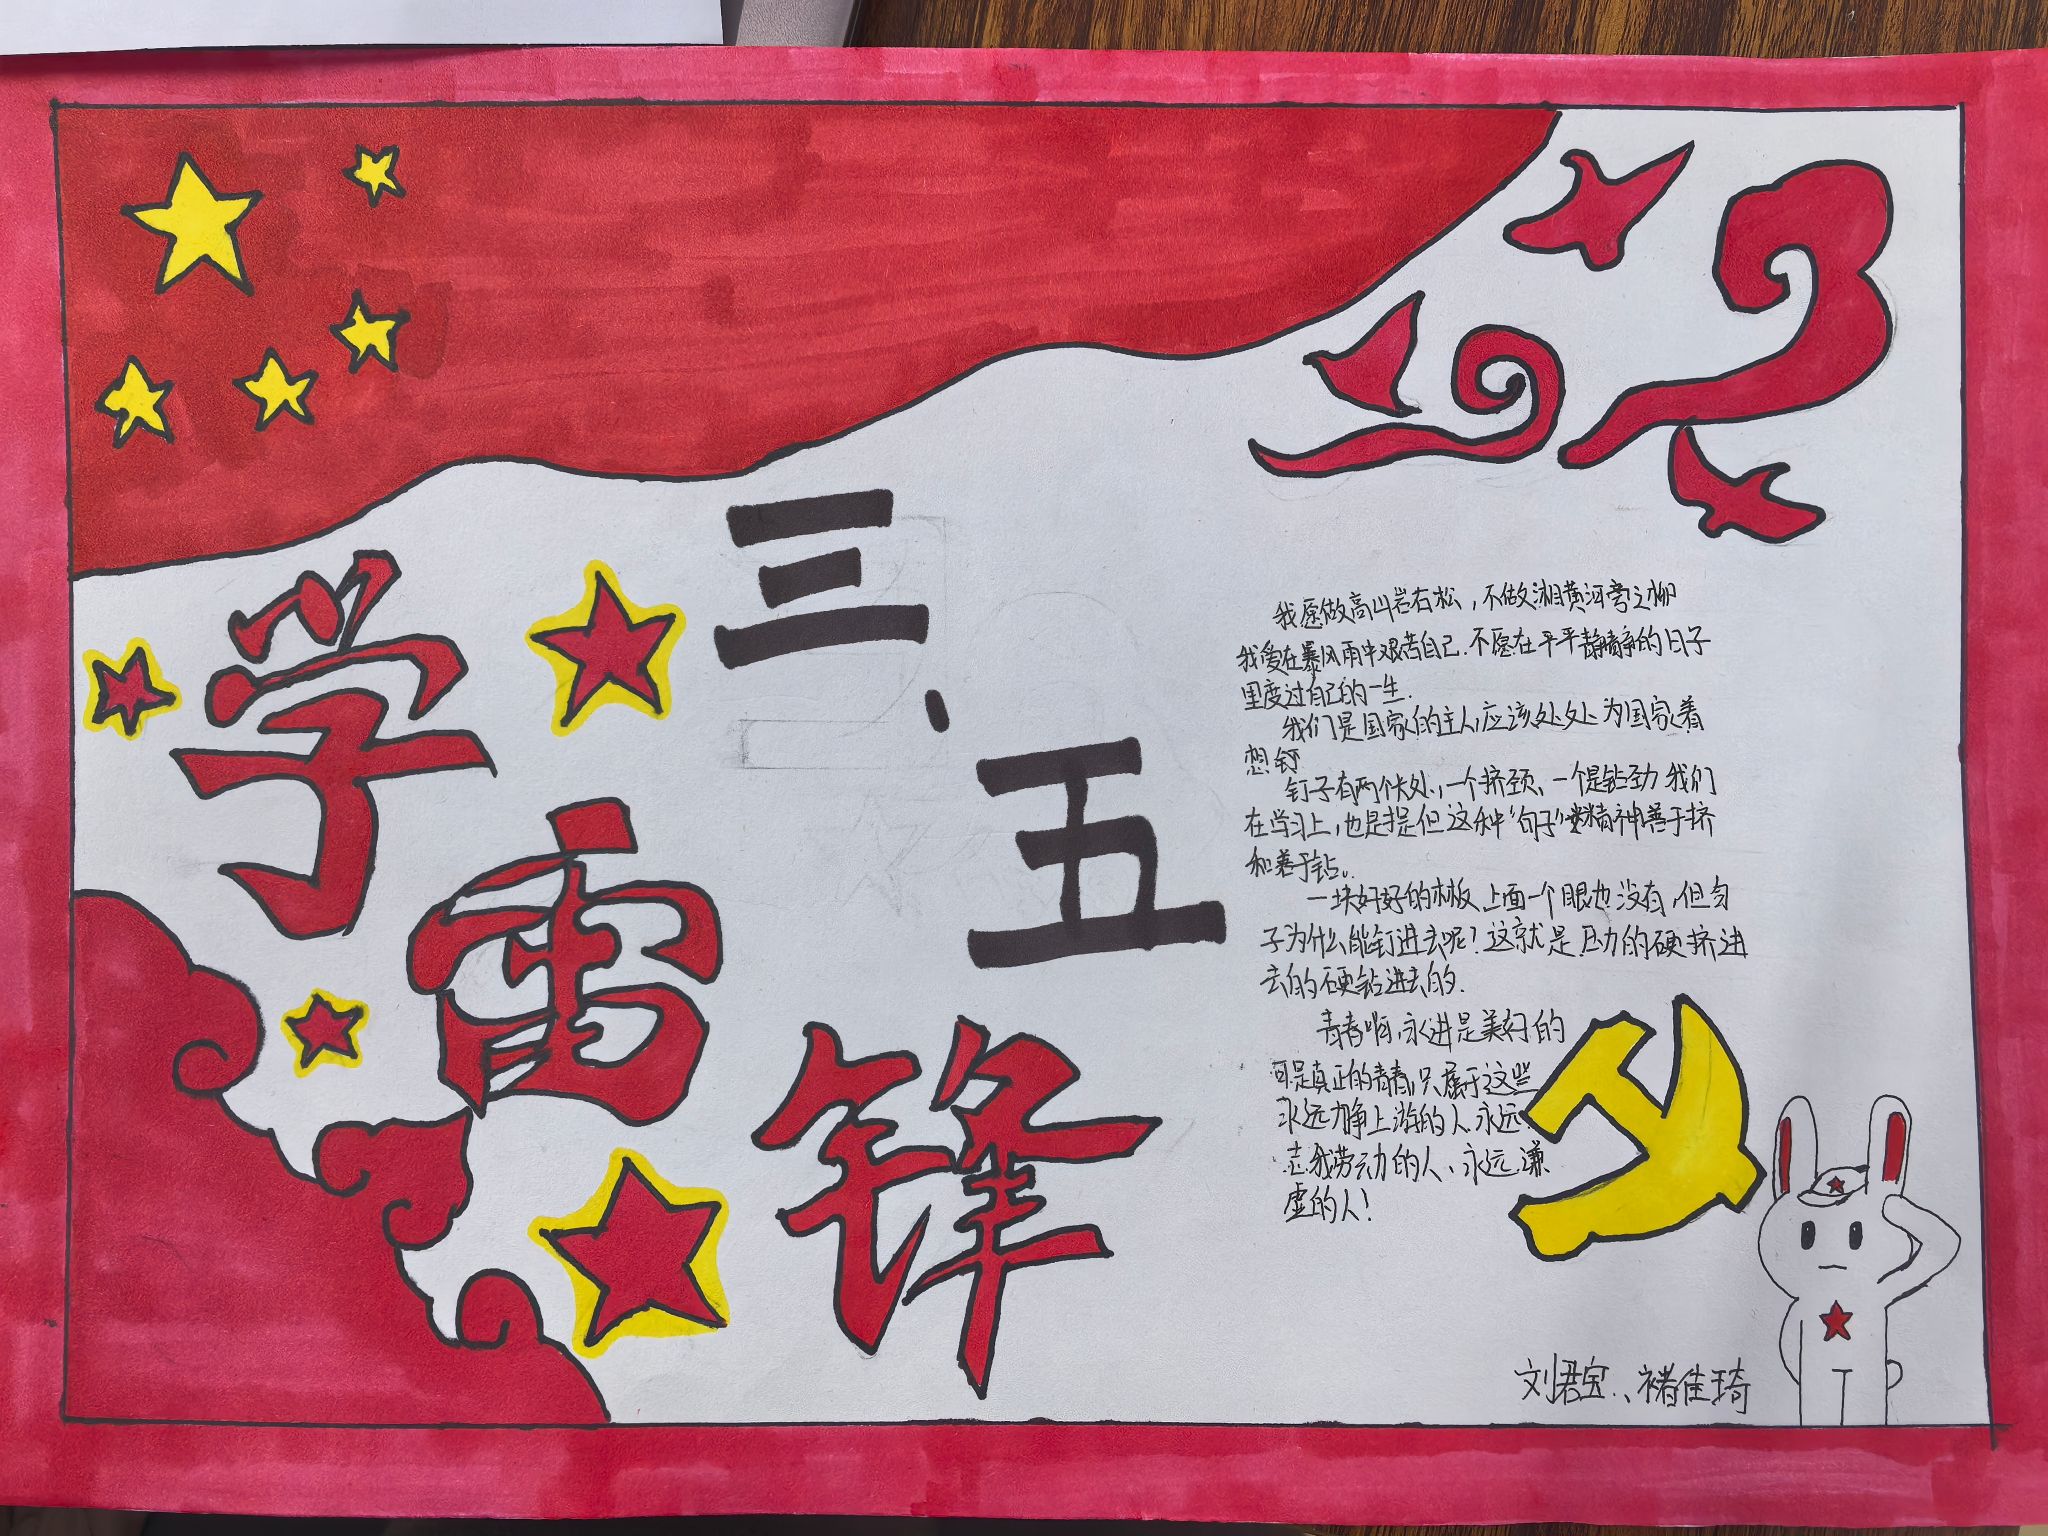 三、五
学雷锋
我愿做高山岩石松，不做湖黄河旁之柳
我爱在暴风雨中艰苦自己.不愿在平平静静的日子
里度过自己的一生.
我们是国家的主人,应该处处为国家着
想
钉子有两个长处,一个挤劲、一个是钻劲 我们
在学习上,也是提但这种“句子”精神善于挤
和善于钻。
一块好好的木板,上面一个眼也没有,但勾
子为什么能钉进去呢？这就是压力的硬挤进
去的硬钻进去的.
青春啊,永进是美好的
可是真正的青春,只属于这些
永远力争上游的人.永远
志我劳动的人、永远谦
虚的人！
刘君宝、褚佳琦